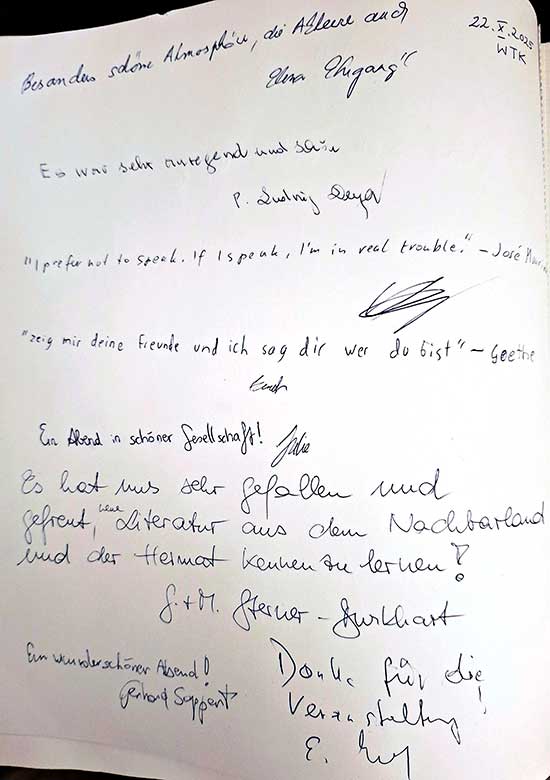 22.X.2025
WTK
Besonders schöne Atmosphäre, die Affeure auch
Elena Ehrgang"
Es war sehr anregend und schön
P. Ludwig
"I prefer not to speak. If I speak, I'm in real trouble." – José
"zeig mir deine Freunde und ich sag dir wer du bist" – Goethe
Ein Abend in schöner Gesellschaft! Julia
Es hat uns sehr gefallen und
gefreut, neue Literatur aus dem Nachbarland
und der Heimat kennen zu lernen!
G. + M. Sterner - Burkhart
Ein wunderschöner Abend!
Gerhard Sappert
Danke für die
Veranstaltung!
E.